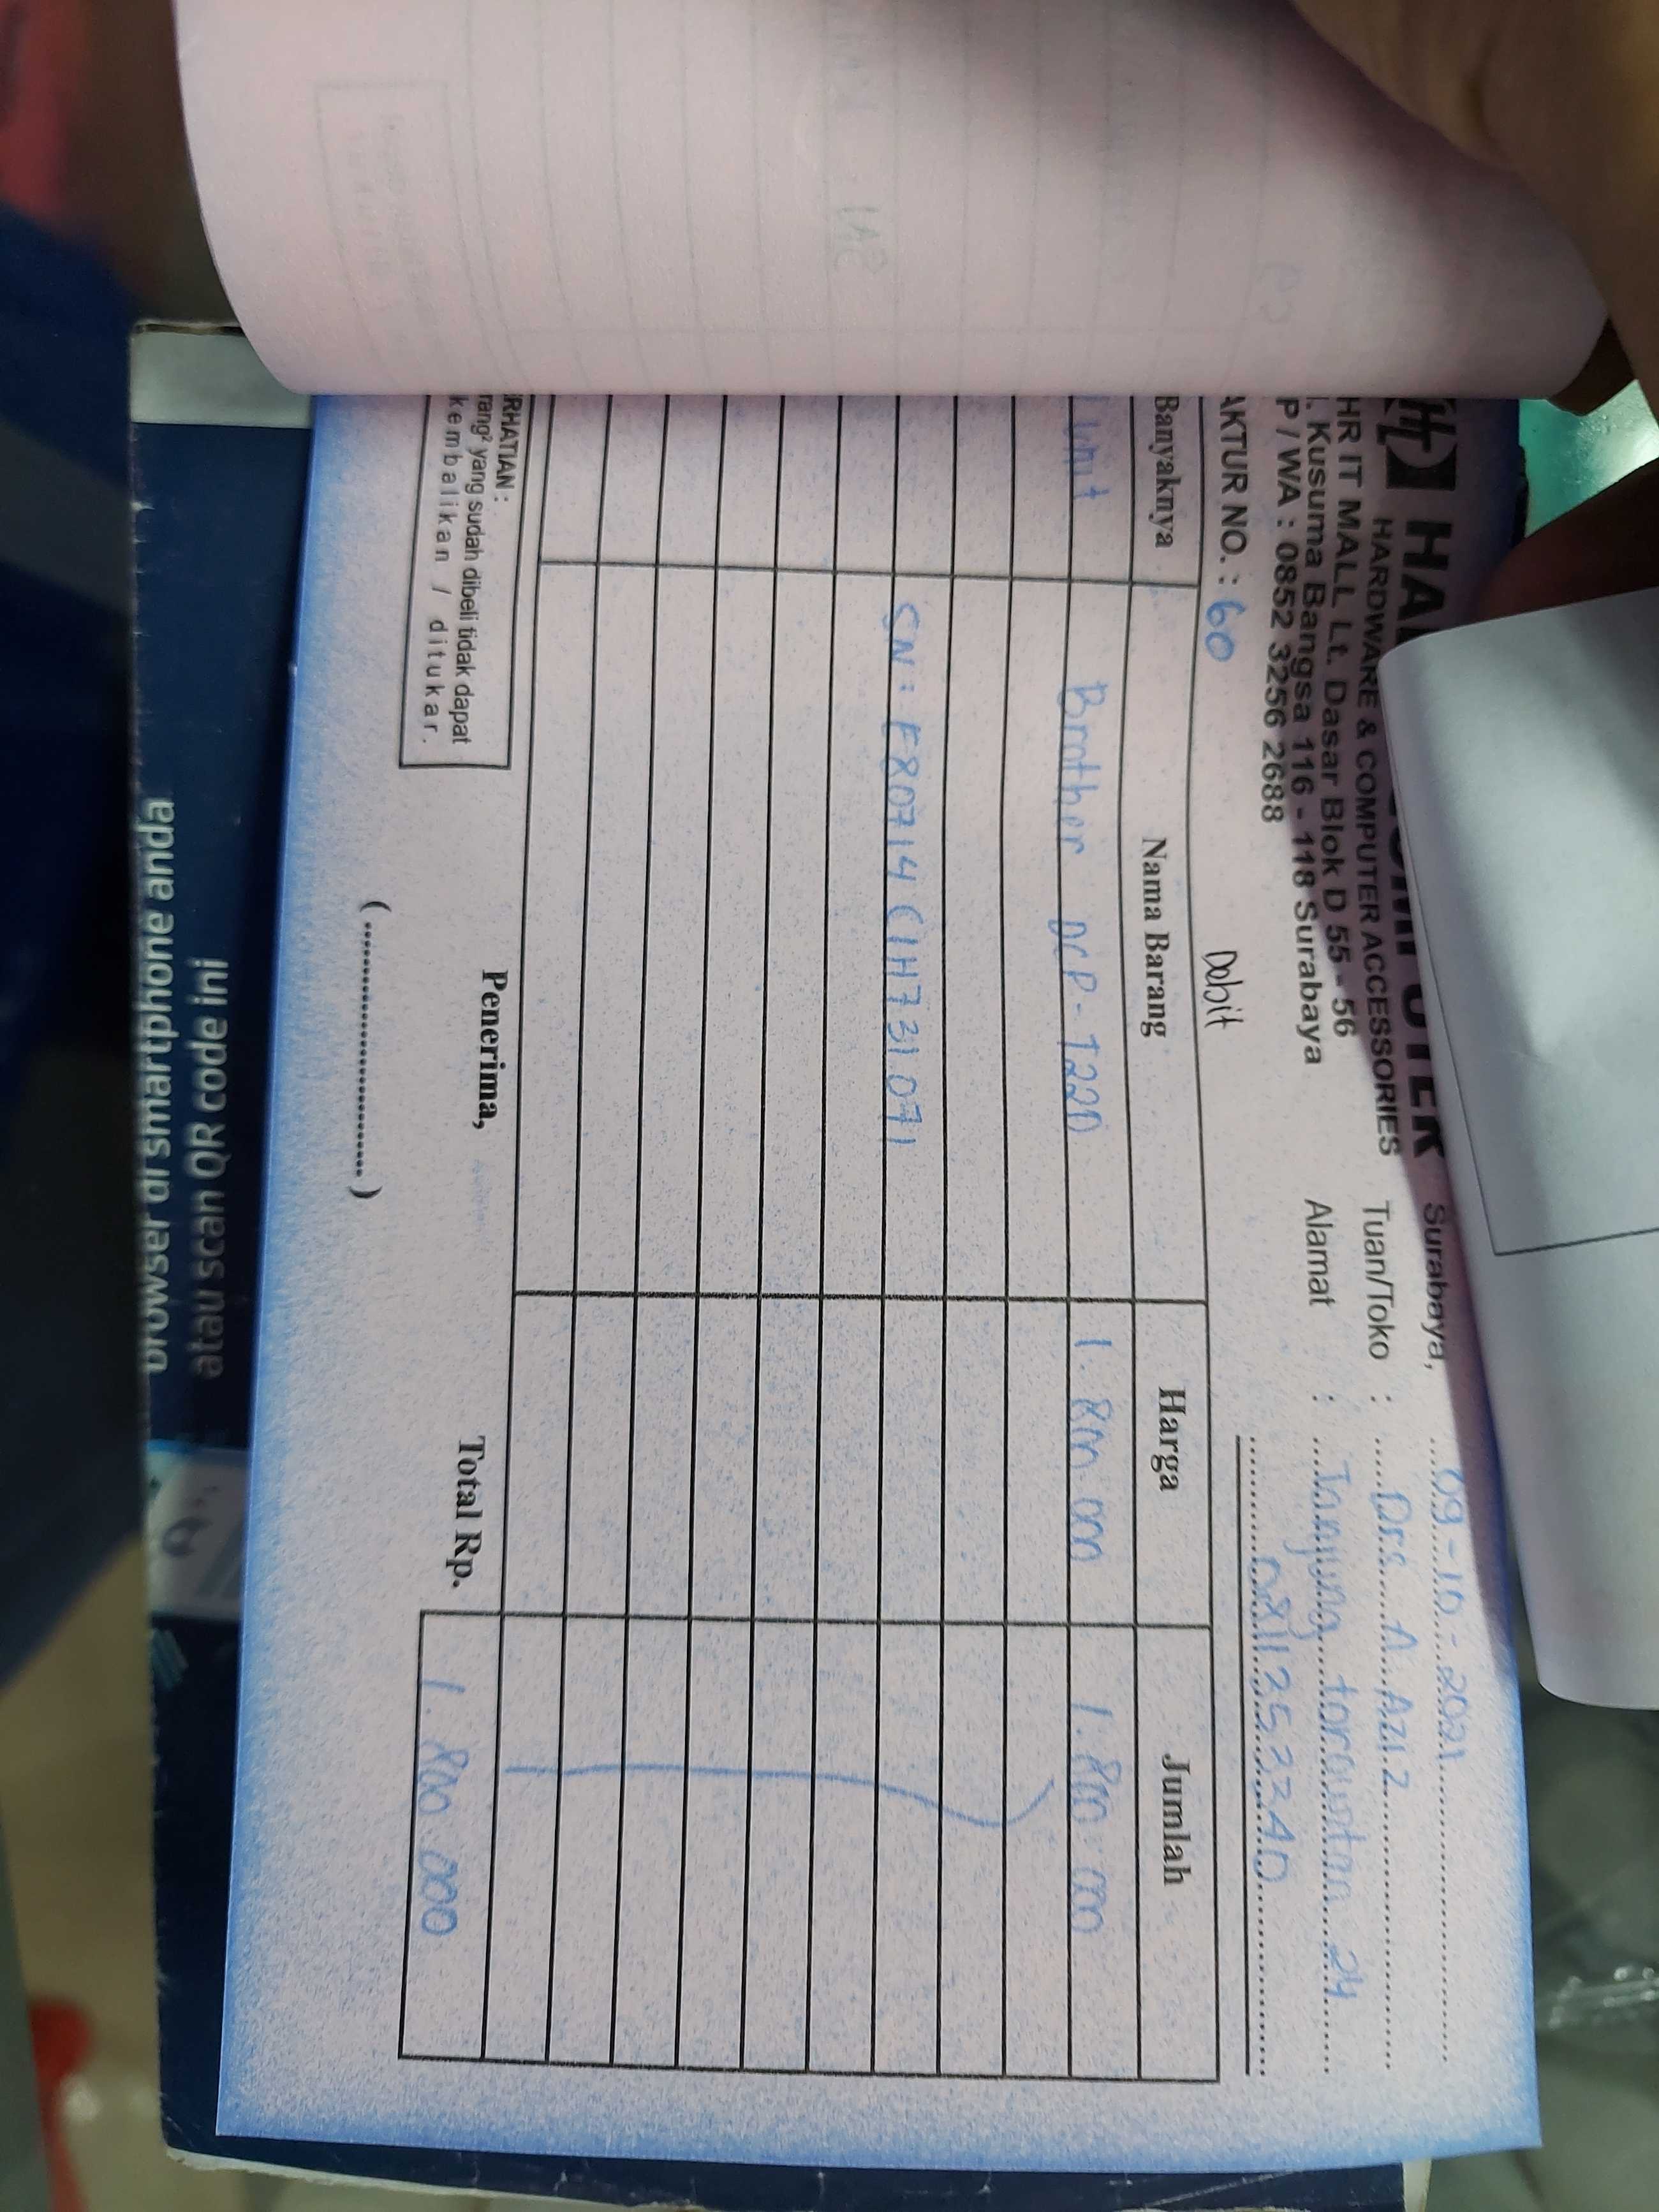 HARDWARE & COMPUTER ACCESSORIES
HR IT MALL Lt. Dasar Blok D 55 - 56
. Kusuma Bangsa 116 - 118 Surabaya
P / WA : 0852 3256 2688
Surabaya, 09 - 10 - 2021
Tuan/Toko : Drs. A. Aziz
Alamat : Tanjung torawitan 24
AKTUR NO. : 60
Debit
Banyaknya Nama Barang Harga Jumlah
unit Brother DCP-T220 1.800.000 1.800.000
SN : E80714C1H731071
Total Rp. 1.800.000
RHATIAN :
rang² yang sudah dibeli tidak dapat
kembalikan / ditukar.
Penerima,
(..............................)
browser di smartphone anda
atau scan QR code ini